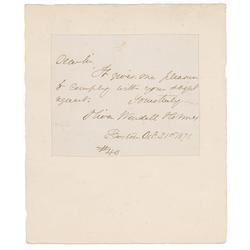 Dear Sir
It gives me pleasure
to comply with your slight
request.
Yours truly
Oliver Wendell Holmes
Boston Oct. 21st 1871
#40